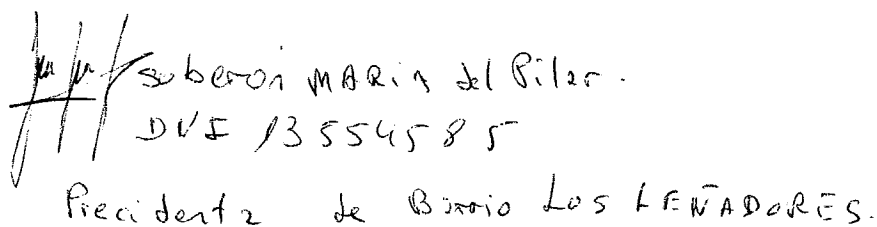 Soberón MARIA del Pilar.
DNI 13554585
Precidenta de Barrio LOS LEÑADORES.